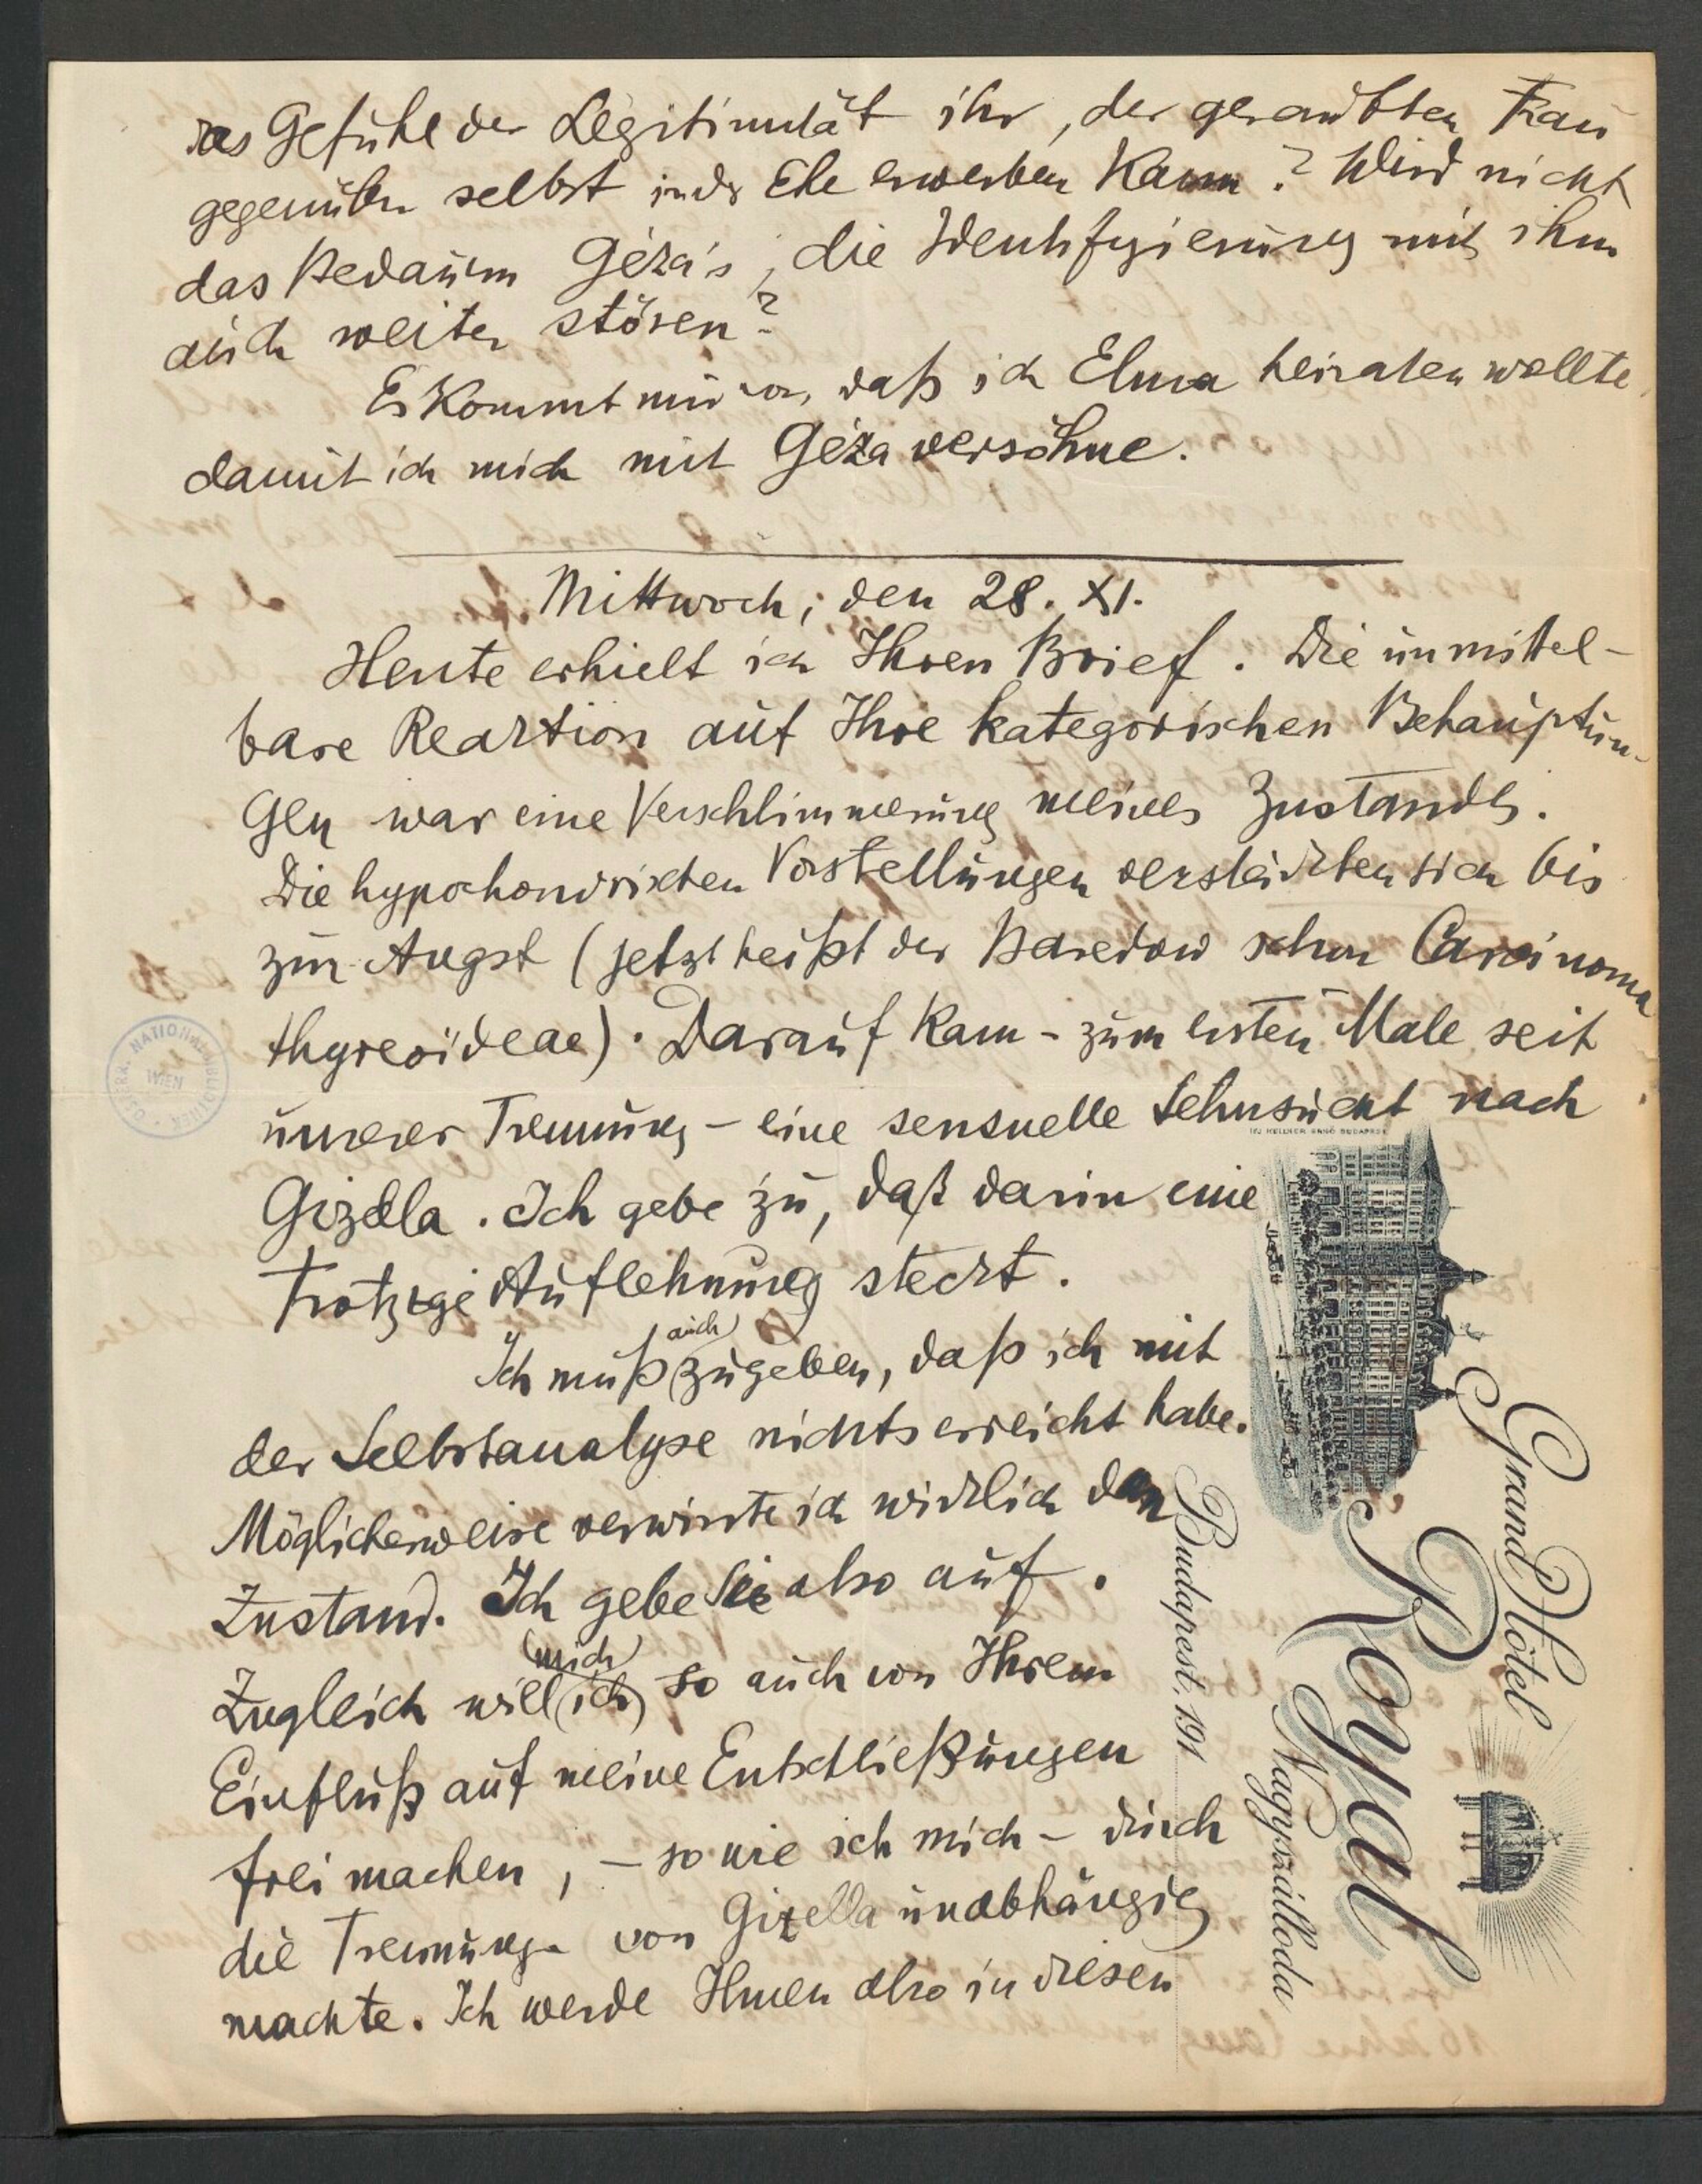 das Gefühl der Legitimität ihr, der geraubten Frau
gegenüber selbst in der Ehe erwerben kann? Wird nicht
das Bedauern Géza's, die Identifizierung mit ihm
auch weiter stören?
Es kommt mir vor, daß ich Elma heiraten wollte,
damit ich mich mit Géza versöhne.
Mittwoch, den 28. XI.
Heute erhielt ich Ihren Brief. Die unmittel-
bare Reaktion auf Ihre kategorischen Behauptun-
gen war eine Verschlimmerung meines Zustandes.
Die hypochondrischen Vorstellungen verstärkten sich bis
zur Angst (jetzt heißt der Basedow schon Carcinoma
thyreoideae). Darauf kam – zum ersten Male seit
unserer Trennung – eine sensuelle Sehnsucht nach
Gizella. Ich gebe zu, daß darin eine
trotzige Auflehnung steckt.
Ich muß auch zugeben, daß ich mit
der Selbstanalyse nichts erreicht habe.
Möglicherweise verwirrte ich wirklich den
Zustand. Ich gebe sie also auf.
Zugleich will ich mich so auch von Ihrem
Einfluß auf meine Entschließungen
frei machen, – so wie ich mich – durch
die Trennung – von Gizella unabhängig
machte. Ich werde Ihnen also in diesen
Grand Hôtel
Royal
Nagyszálloda
Budapest, 191
ÖSTERR. NATIONALBIBLIOTHEK
WIEN